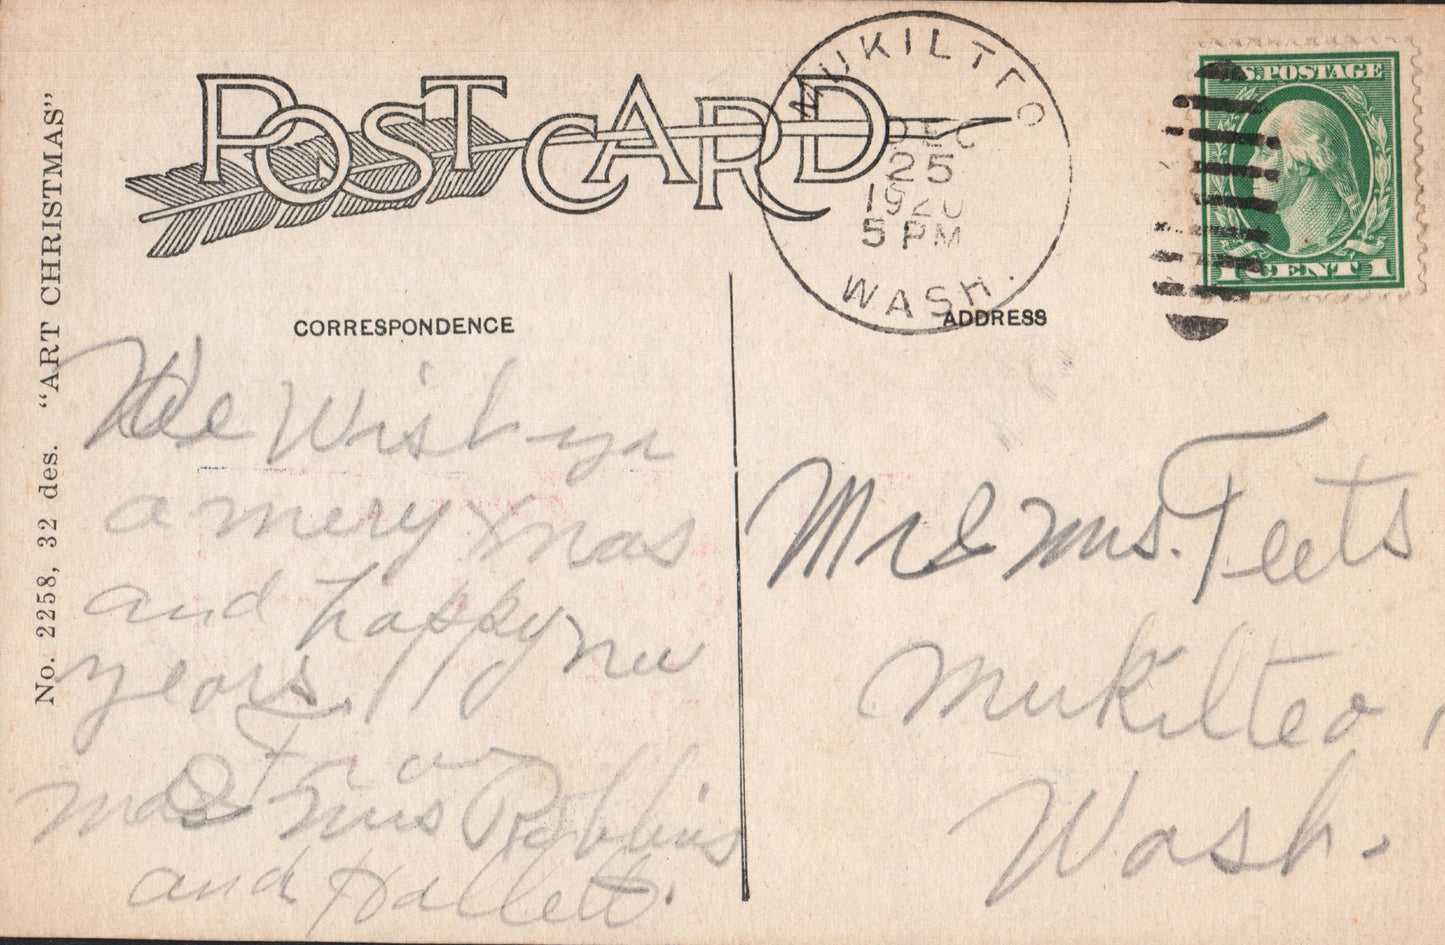 POST CARD
MUKILTEO
DEC
25
1920
5 PM
WASH.
U.S. POSTAGE
1 CENT 1
No. 2258, 32 des. "ART CHRISTMAS"
CORRESPONDENCE
We Wish yu
a mery xmas
and happy nu
years.
From
Mr & Mrs Robbins
and Hallett.
ADDRESS
Mr & Mrs. Teets
Mukilteo,
Wash.